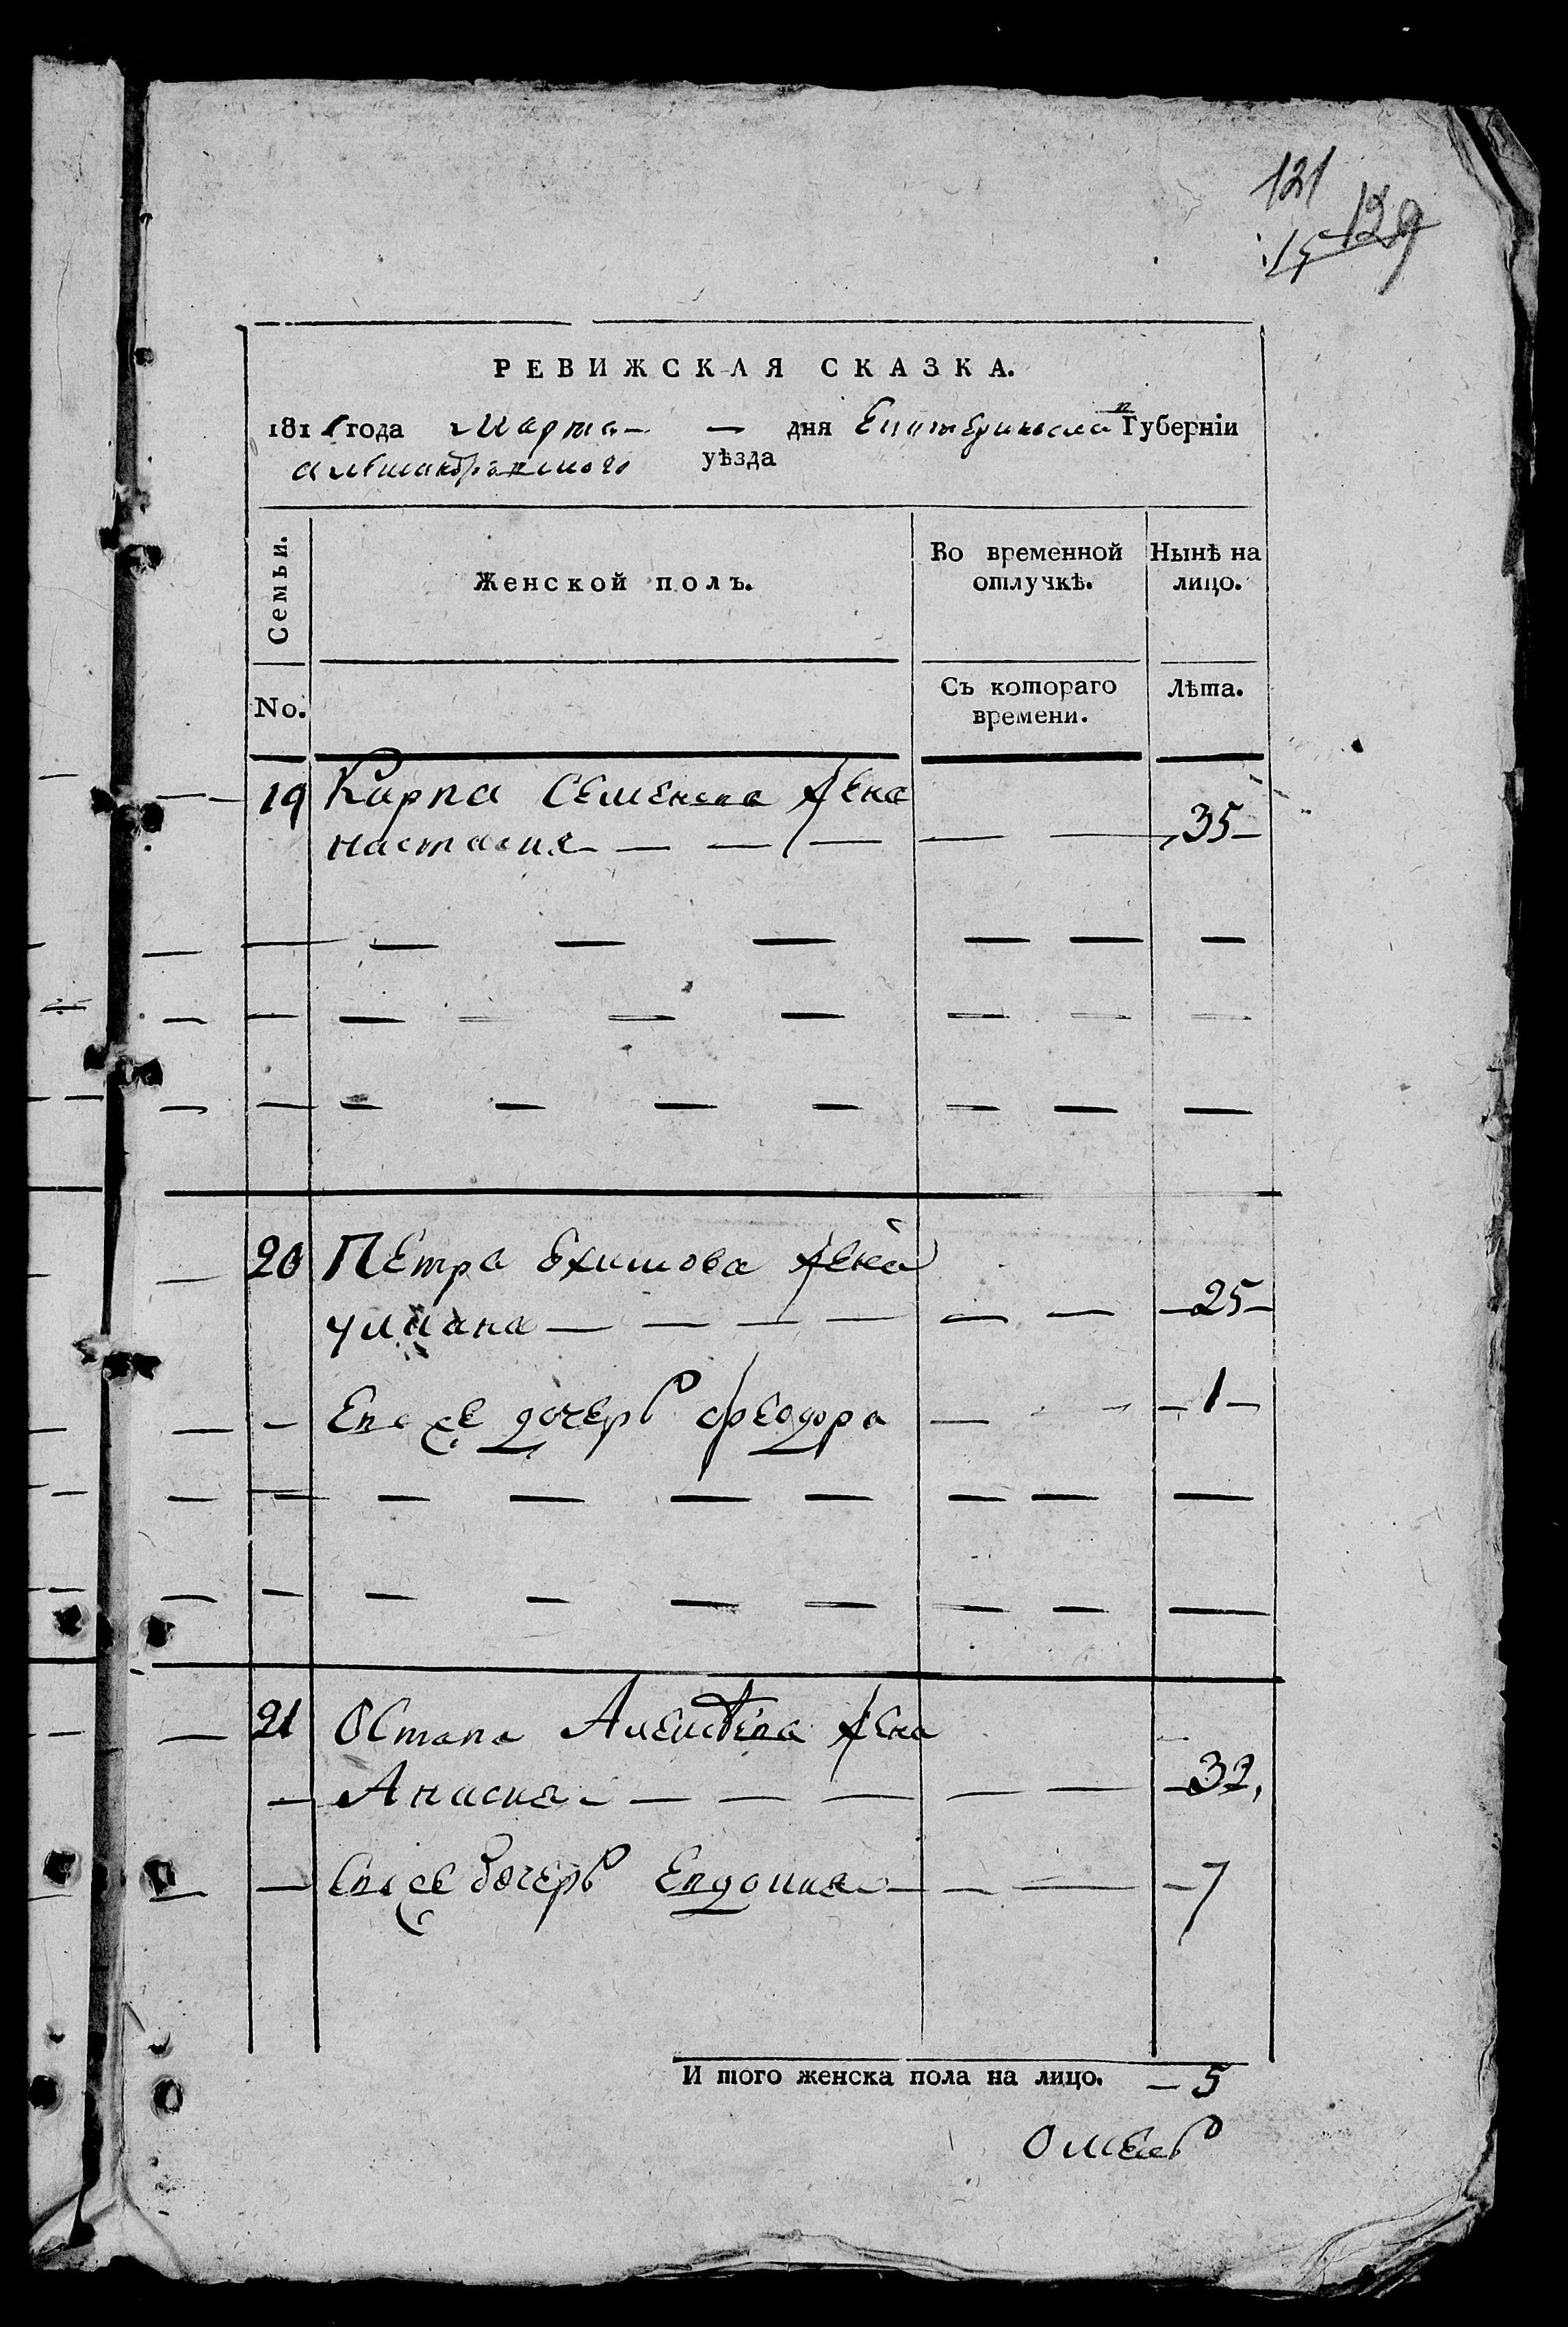 121
129
15
РЕВИЖСКАЯ СКАЗКА.
181 года Марта — — дня Екатериносла Губерніи
уѣзда
Семьи.
Женской полъ.
Во временной отлучкѣ.
Нынѣ на лицо.
No.
Съ котораго времени.
Лѣта.
19 Карпа Семенова жена
настасия — — — — — 35 —
20 Петра Ехимова жена
улияна — — — — — — 25 —
— Ево же дочерь феодора — — — 1 —
21 Остапа Алексѣева жена
— — — — — — — 32
— Ево же дочерь Евдокия — — — 7
И того женска пола на лицо. — 5